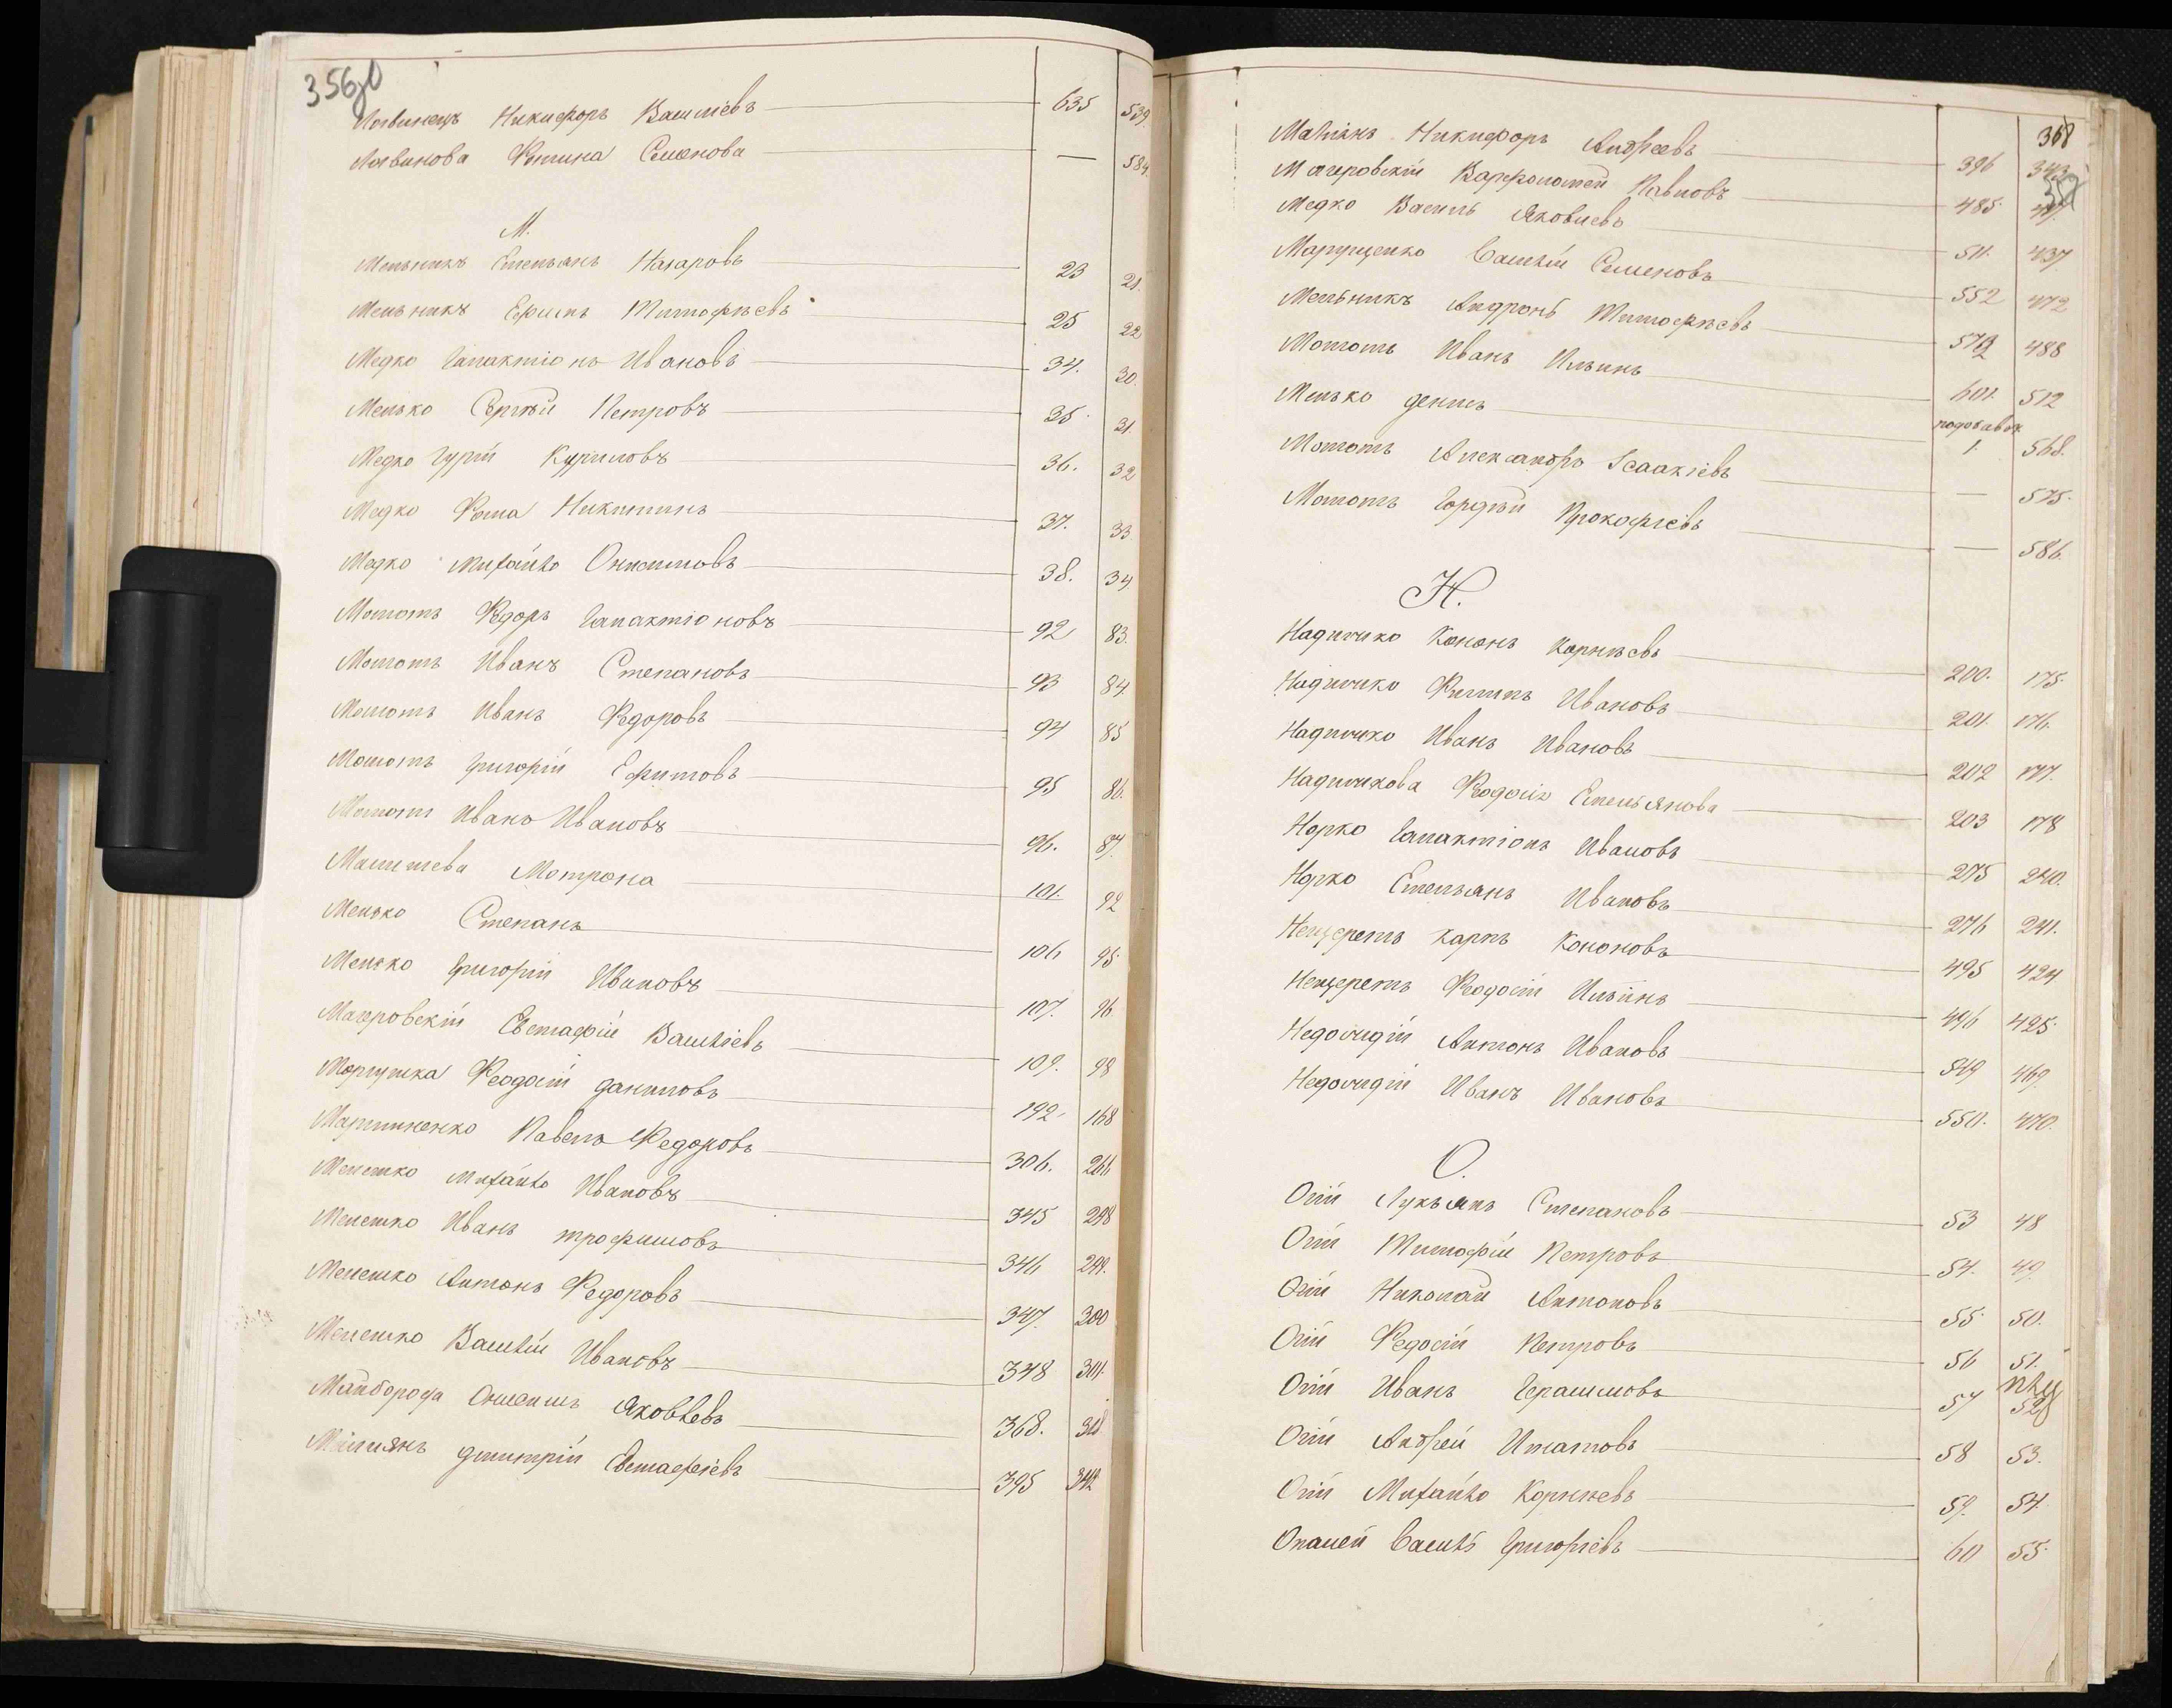 Логвинецъ Никифоръ Васильевъ — 635 539
Логвинова Фотина Семенова — — 584.
М.
Мельникъ Емельянъ Назаровъ — 23 21.
Мельникъ Ефимъ Тимофѣевъ — 25 22
Медко Галактіонъ Ивановъ — 34. 30.
Мелько Сергѣй Петровъ 35 31.
Медко Гурій Куриловъ — 36. 32
Медко Фома Никитинъ — 37. 33
Медко Михайло Онисимовъ — 38. 34
Мототъ Ѳедоръ Галактіоновъ — 92 83.
Мототъ Иванъ Степановъ — 93 84.
Мототъ Иванъ Ѳедоровъ — 94 85
Мототъ Григорій Ефимовъ — 95 86.
Мототъ Иванъ Ивановъ — 96. 87.
Матрона — 101. 92
Мелько Степанъ — 106 95.
Мелько Григорій Ивановъ — 107. 96
Магеровскій Евстафій Васильевъ — 109. 98
Моргушка Ѳеодосій Даниловъ — 192. 168
Мартиненко Павелъ Ѳедоровъ — 306. 266
Мелешко Михайло Ивановъ — 345 298
Мелешко Иванъ Трофимовъ — 346 299.
Мелешко Антонъ Ѳедоровъ — 347. 300
Мелешко Василій Ивановъ — 348 301.
Майборода Онисимъ Яковлевъ — 368. 318
Дмитрій Евстафіевъ — 395 342
368
Никифоръ Андреевъ — 396 343
Магеровскій Варфоломей Павловъ — 485.
Медко Василь Яковлевъ — 511. 437
Марущенко Василій Семеновъ — 552 472
Мельникъ Андронъ Тимофѣевъ — 572 488
Мототъ Иванъ Ильинъ — 601. 512
Мелько Денисъ — 1. 568.
Мототъ Александръ Ісаакіевъ — — 575.
Мототъ Гордѣй Прокофіевъ — — 586.
Н.
Надточико Кононъ Корнѣевъ — 200. 175.
Надточико Филипъ Ивановъ — 201. 176.
Надточико Иванъ Ивановъ — 202 177.
Надточикова Ѳеодосія Емельянова — 203 178
Норко Галактіонъ Ивановъ — 275 240.
Норко Емельянъ Ивановъ — 276 241.
Нещеретъ Карпъ Кононовъ — 495 424
Нещеретъ Ѳеодосій Ильинъ — 496 425.
Недоиидій Антонъ Ивановъ — 549 469.
Недоиидій Иванъ Ивановъ — 550. 470.
О.
Огій Лукьянъ Степановъ — 53 48
Огій Тимофій Петровъ — 54. 49.
Огій Николай Антоновъ — 55. 50.
Огій Ѳедосій Петровъ — 56 51.
Огій Иванъ Герасимовъ — 57 52
Огій Андрей Игнатовъ — 58 53.
Огій Михайло Корнѣевъ — 59. 54.
Опалей Василь Григорієвъ — 60 55.